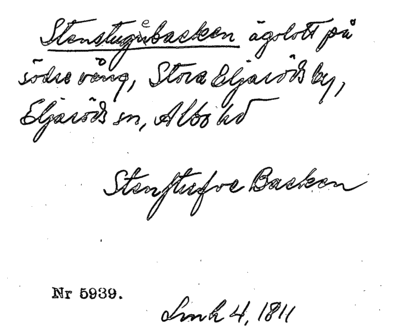 Stenstugubacken ägolott på
södre vång, Stora Eljaröds by,
Eljaröds sn, Albo hd
Stenstufve Backen
Nr 5939.
Lmh 4, 1811